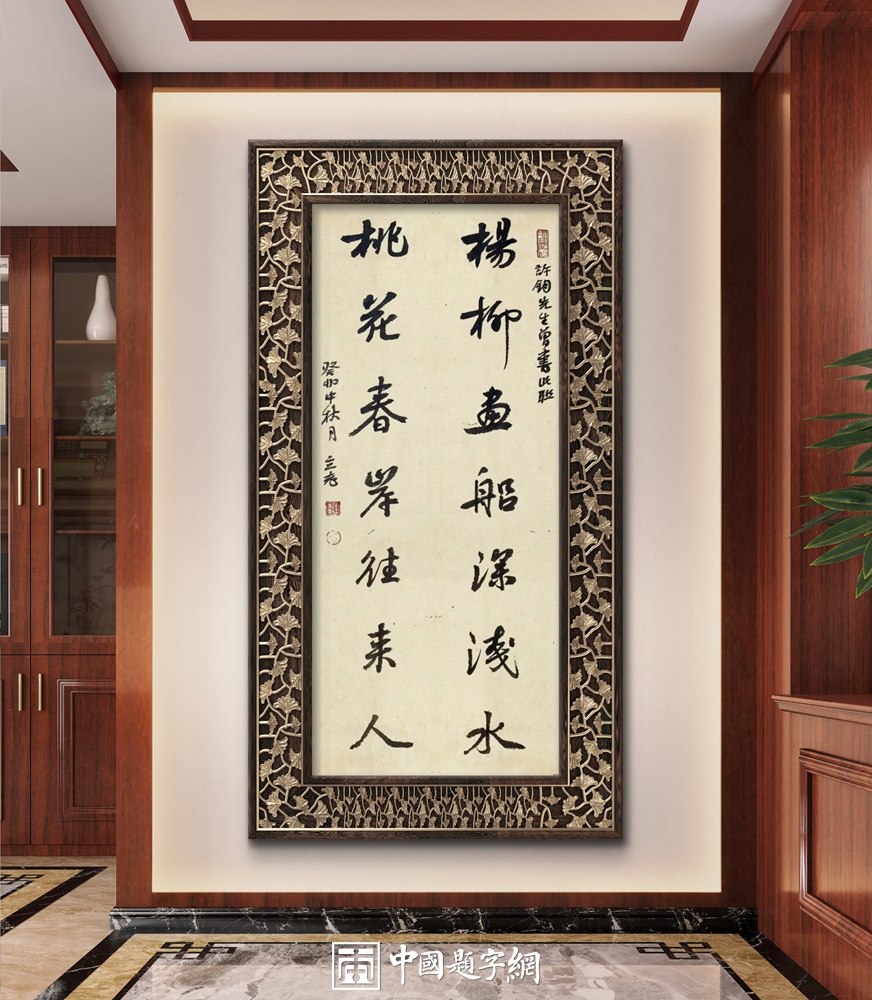 許鈞先生曾書此聯
楊柳畫船深淺水
桃花春岸往來人
癸卯中秋月 立志
中國題字網